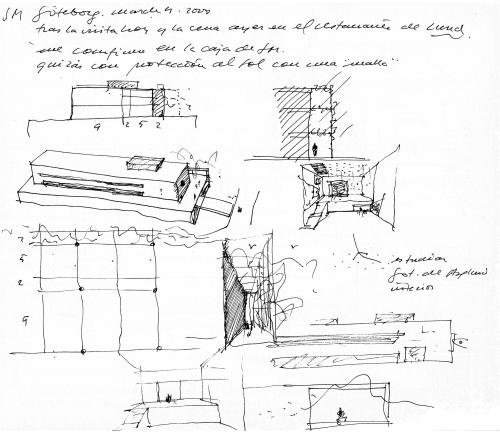 SM Göteborg. march 4. 2000
tras la visita hoy y la cena ayer en el restaurante de Lund.
me confirmo en la caja de
quizás con protección al sol con una "malla"
9 2 5 2
2
5
2
9
estudiar